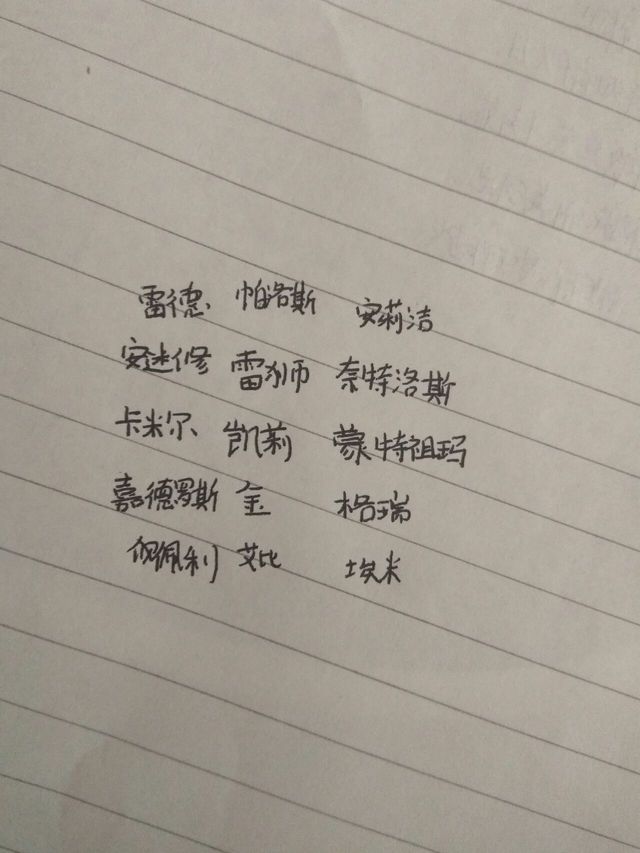 雷德、 帕洛斯 安莉洁
安迷修 雷狮 奈特洛斯
卡米尔、 凯莉 蒙特祖玛
嘉德罗斯 金 格瑞
佩利 艾比 埃米